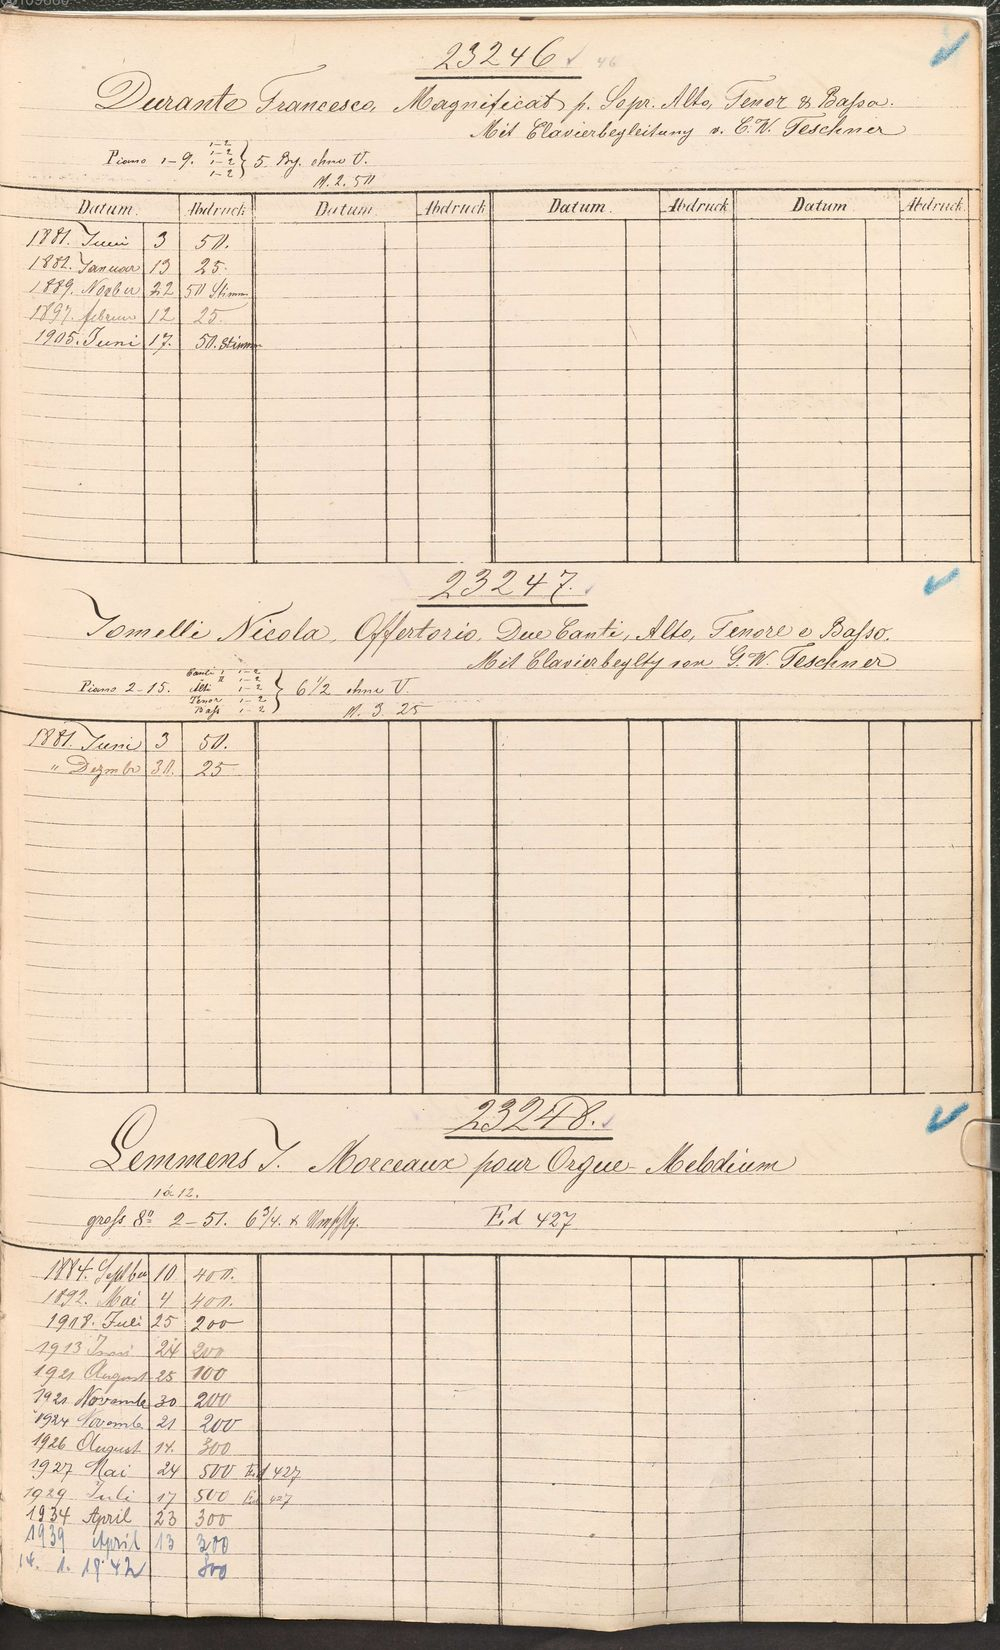 23246
Durante Francesco, Magnificat p. Sopr. Alto, Tenor & Basso.
Mit Clavierbegleitung v. G. W. Teschner
1-2
1-2
Piano 1-9. 1-2 } 5 Bg. ohne U.
1-2
M. 2. 50
Datum. Abdruck Datum. Abdruck Datum. Abdruck Datum Abdruck
1881. Juni 3 50.
1882. Januar 13 25.
1889. Novber 22 50 Stimm
1897. februar 12 25.
1905. Juni 17. 50. Stimm
23247.
Jomelli Nicola, Offertorio, Due Canti, Alto, Tenore e Basso.
Mit Clavierbegltg von G. W. Teschner
Canti I 1-2
" II 1-2
Piano 2-15. Alti 1-2 } 6 1/2 ohne U.
Tenor 1-2
Bass 1-2
M. 3. 25
1881. Juni 3 50.
" Dezmbr 30. 25
23248.
Lemmens J. Morceaux pour Orgue-Melodium
1 à 12.
gross 8º 2-51. 6 3/4. + Umschlg. Ed 427
1884. Septber 10 400.
1892. Mai 4 400.
1908. Juli 25 200
1913 Juni 24 200
1921 August 25 100
1921 Novembe 30 200
1924 Novemb 21 200
1926 August 14. 300
1927 Mai 24 500 Ed 427
1929 Juli 17 500 Ed 427
1934 April 23 300
1939 April 13 300
14. 1. 1942 300